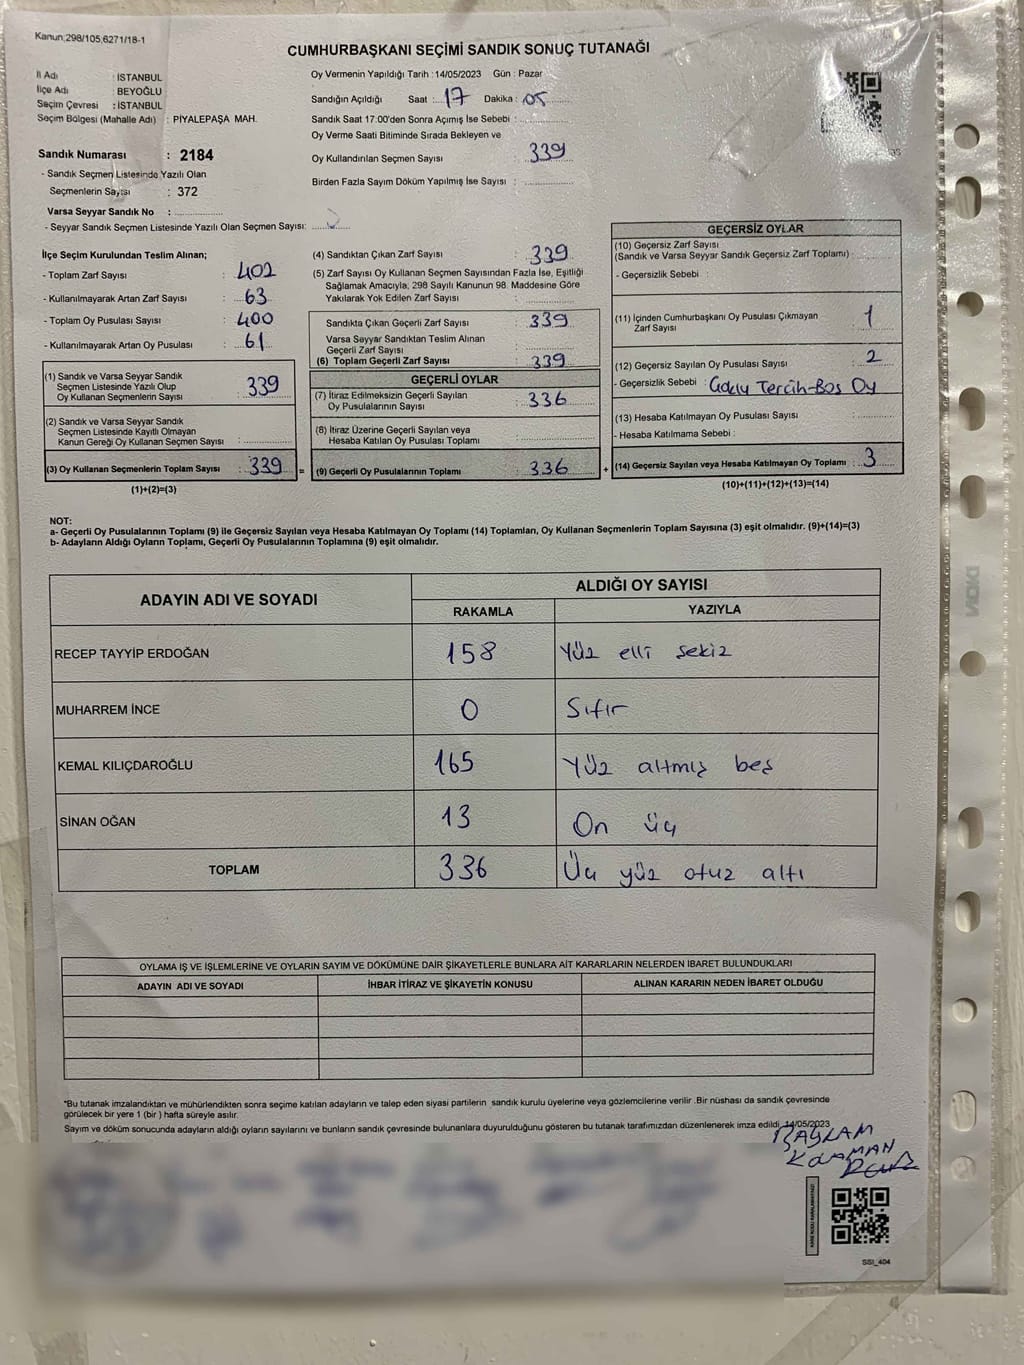 Kanun;298/105,6271/18-1
CUMHURBAŞKANI SEÇİMİ SANDIK SONUÇ TUTANAĞI
İl Adı : İSTANBUL
İlçe Adı : BEYOĞLU
Seçim Çevresi : İSTANBUL
Seçim Bölgesi (Mahalle Adı) : PİYALEPAŞA MAH.
Oy Vermenin Yapıldığı Tarih : 14/05/2023 Gün : Pazar
Sandığın Açıldığı Saat : 17 Dakika : 05
Sandık Saat 17:00'den Sonra Açımış İse Sebebi :
Oy Verme Saati Bitiminde Sırada Bekleyen ve
Oy Kullandırılan Seçmen Sayısı : 339
Birden Fazla Sayım Döküm Yapılmış İse Sayısı :
Sandık Numarası : 2184
- Sandık Seçmen Listesinde Yazılı Olan
Seçmenlerin Sayısı : 372
Varsa Seyyar Sandık No :
- Seyyar Sandık Seçmen Listesinde Yazılı Olan Seçmen Sayısı:
İlçe Seçim Kurulundan Teslim Alınan;
- Toplam Zarf Sayısı : 402
- Kullanılmayarak Artan Zarf Sayısı : 63
- Toplam Oy Pusulası Sayısı : 400
- Kullanılmayarak Artan Oy Pusulası : 61
(1) Sandık ve Varsa Seyyar Sandık
Seçmen Listesinde Yazılı Olup
Oy Kullanan Seçmenlerin Sayısı : 339
(2) Sandık ve Varsa Seyyar Sandık
Seçmen Listesinde Kayıtlı Olmayan
Kanun Gereği Oy Kullanan Seçmen Sayısı :
(3) Oy Kullanan Seçmenlerin Toplam Sayısı : 339 =
(1)+(2)=(3)
(4) Sandıktan Çıkan Zarf Sayısı : 339
(5) Zarf Sayısı Oy Kullanan Seçmen Sayısından Fazla İse, Eşitliği
Sağlamak Amacıyla, 298 Sayılı Kanunun 98. Maddesine Göre
Yakılarak Yok Edilen Zarf Sayısı :
Sandıkta Çıkan Geçerli Zarf Sayısı : 339
Varsa Seyyar Sandıktan Teslim Alınan
Geçerli Zarf Sayısı :
(6) Toplam Geçerli Zarf Sayısı : 339
GEÇERLİ OYLAR
(7) İtiraz Edilmeksizin Geçerli Sayılan
Oy Pusulalarının Sayısı : 336
(8) İtiraz Üzerine Geçerli Sayılan veya
Hesaba Katılan Oy Pusulası Toplamı :
(9) Geçerli Oy Pusulalarının Toplamı : 336 +
GEÇERSİZ OYLAR
(10) Geçersiz Zarf Sayısı
(Sandık ve Varsa Seyyar Sandık Geçersiz Zarf Toplamı) :
- Geçersizlik Sebebi :
(11) İçinden Cumhurbaşkanı Oy Pusulası Çıkmayan
Zarf Sayısı : 1
(12) Geçersiz Sayılan Oy Pusulası Sayısı : 2
- Geçersizlik Sebebi : Çoklu Tercih-Boş Oy
(13) Hesaba Katılmayan Oy Pusulası Sayısı :
- Hesaba Katılmama Sebebi :
(14) Geçersiz Sayılan veya Hesaba Katılmayan Oy Toplamı : 3
(10)+(11)+(12)+(13)=(14)
NOT:
a- Geçerli Oy Pusulalarının Toplamı (9) ile Geçersiz Sayılan veya Hesaba Katılmayan Oy Toplamı (14) Toplamları, Oy Kullanan Seçmenlerin Toplam Sayısına (3) eşit olmalıdır. (9)+(14)=(3)
b- Adayların Aldığı Oyların Toplamı, Geçerli Oy Pusulalarının Toplamına (9) eşit olmalıdır.
ADAYIN ADI VE SOYADI
ALDIĞI OY SAYISI
RAKAMLA YAZIYLA
RECEP TAYYİP ERDOĞAN 158 Yüz elli sekiz
MUHARREM İNCE 0 Sıfır
KEMAL KILIÇDAROĞLU 165 Yüz altmış beş
SİNAN OĞAN 13 On üç
TOPLAM 336 Üç yüz otuz altı
OYLAMA İŞ VE İŞLEMLERİNE VE OYLARIN SAYIM VE DÖKÜMÜNE DAİR ŞİKAYETLERLE BUNLARA AİT KARARLARIN NELERDEN İBARET BULUNDUKLARI
ADAYIN ADI VE SOYADI İHBAR İTİRAZ VE ŞİKAYETİN KONUSU ALINAN KARARIN NEDEN İBARET OLDUĞU
*Bu tutanak imzalandıktan ve mühürlendikten sonra seçime katılan adayların ve talep eden siyasi partilerin sandık kurulu üyelerine veya gözlemcilerine verilir .Bir nüshası da sandık çevresinde
görülecek bir yere 1 (bir ) hafta süreyle asılır.
Sayım ve döküm sonucunda adayların aldığı oyların sayılarını ve bunların sandık çevresinde bulunanlara duyurulduğunu gösteren bu tutanak tarafımızdan düzenlenerek imza edildi. 14/05/2023
BAYRAM
SSI_404